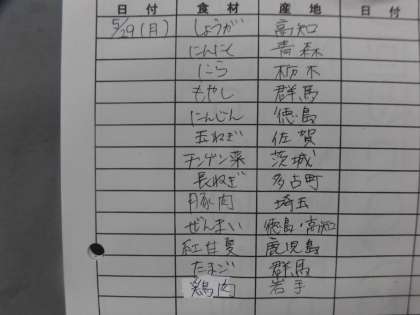 日付 食材 産地 日付
5/29(月) しょうが 高知
にんにく 青森
にら 栃木
もやし 群馬
にんじん 徳島
玉ねぎ 佐賀
チンゲン菜 茨城
長ねぎ 多古町
豚肉 埼玉
ぜんまい 徳島・高知
紅甘夏 鹿児島
たまご 群馬
鶏肉 岩手